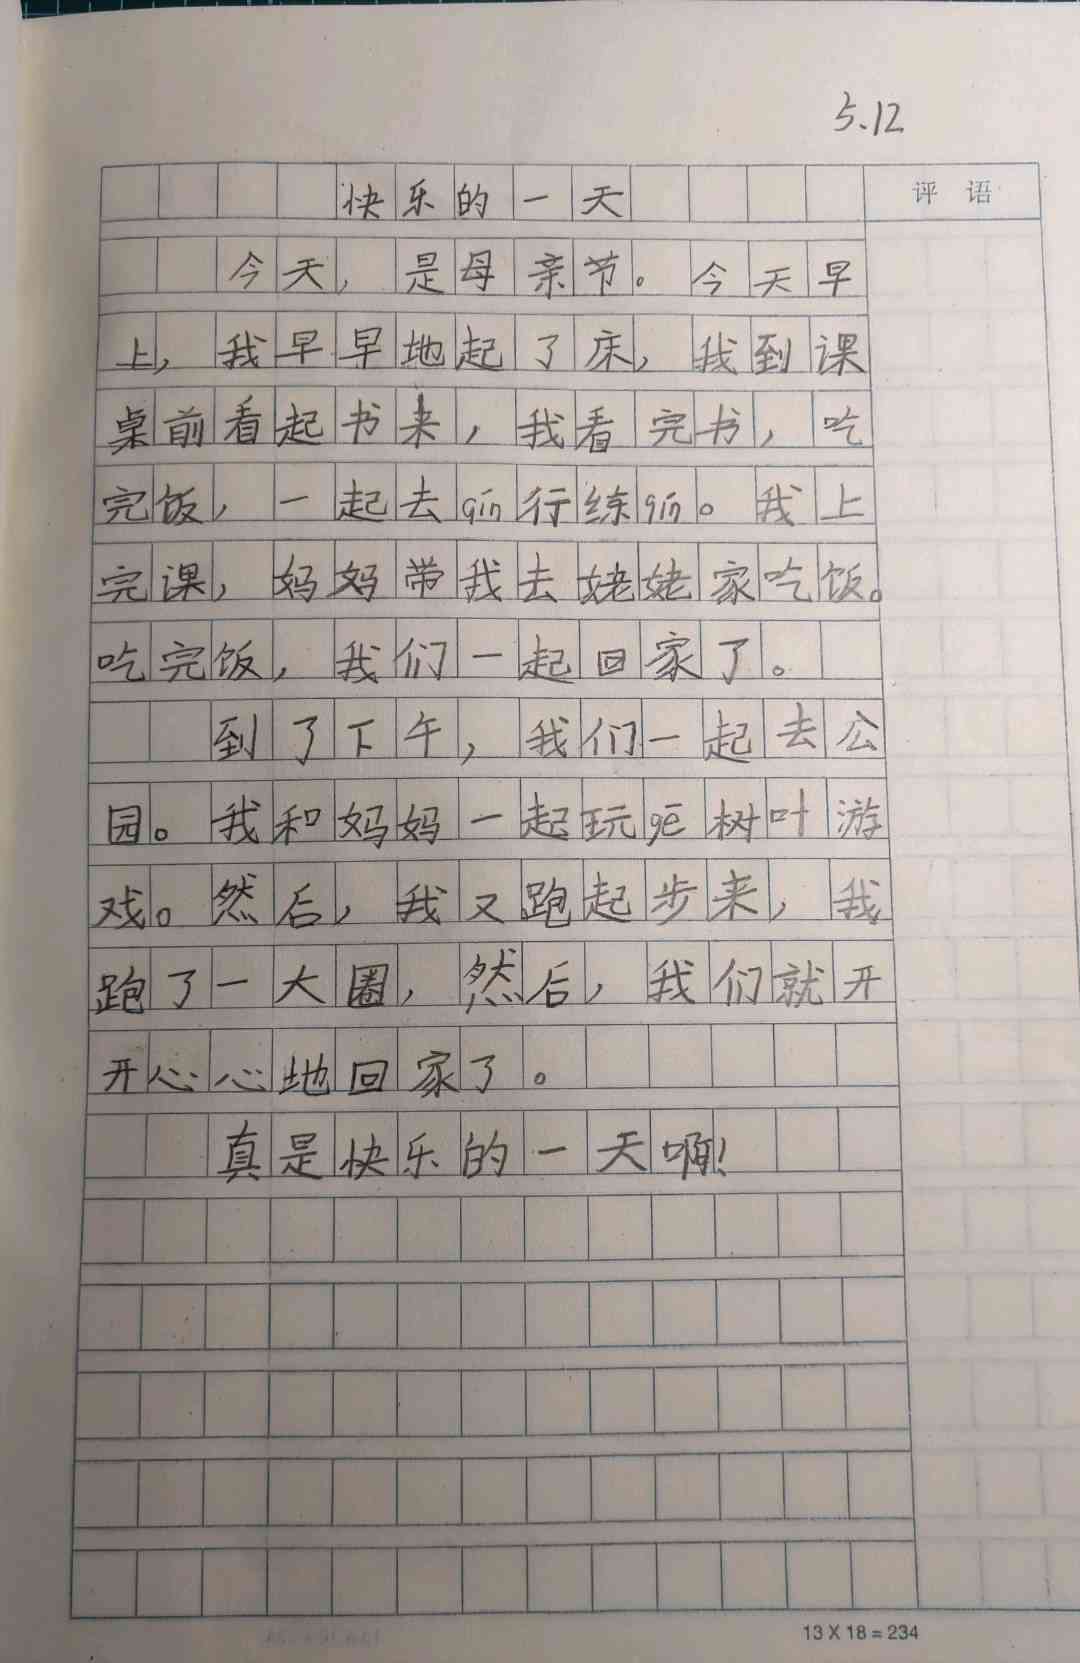 5.12
快乐的一天
评语
今天，是母亲节。今天早
上，我早早地起了床，我到课
桌前看起书来，我看完书，吃
完饭，一起去qin行练qin。我上
完课，妈妈带我去姥姥家吃饭。
吃完饭，我们一起回家了。
到了下午，我们一起去公
园。我和妈妈一起玩gē树叶游
戏。然后，我又跑起步来，我
跑了一大圈，然后，我们就开
开心心地回家了。
真是快乐的一天啊！
13 X 18 = 234